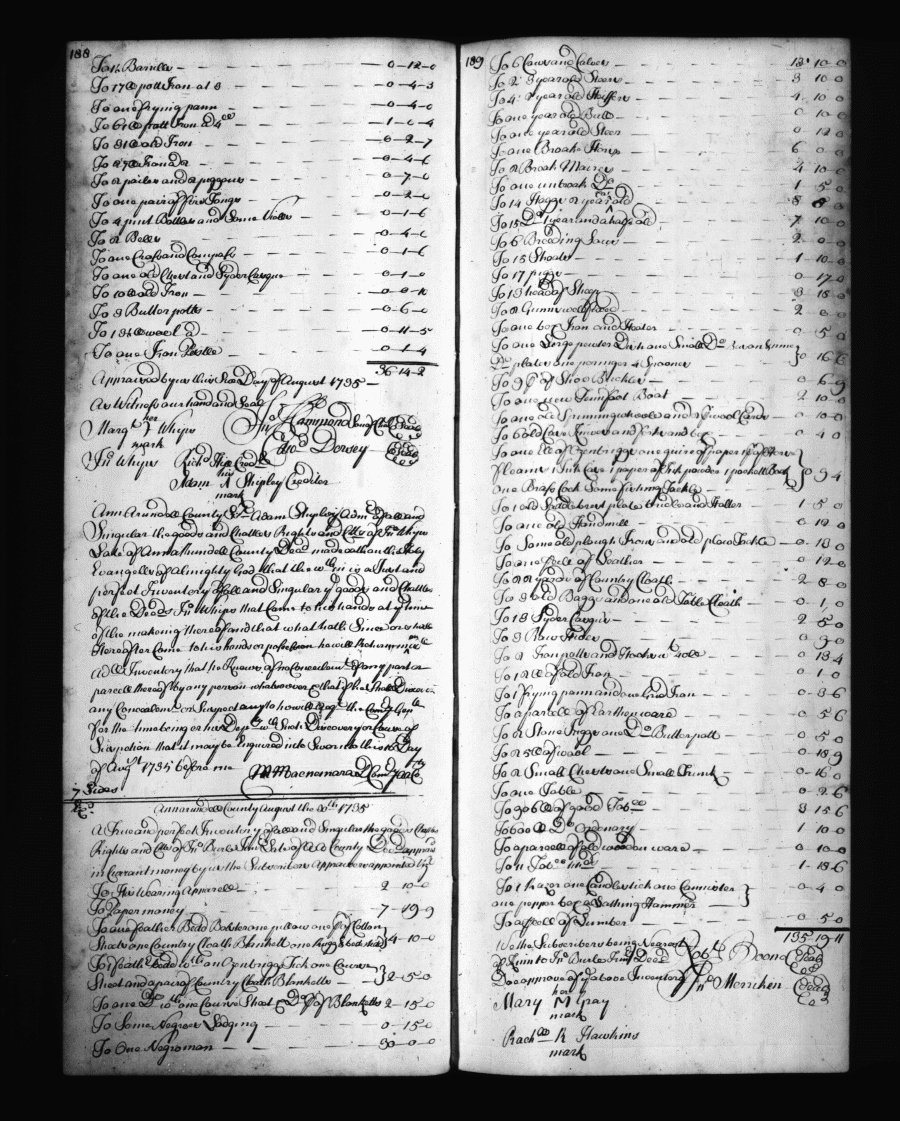 188
To 12 Barrills — 0-12-0
To 17 lb pott Iron at 3 — 0-4-3
To one frying pann — 0-4-0
To 61 lb pott Iron a 4 — 1-0-4
To 31 lb old Iron — 0-2-7
To 27 lb Iron a 2 — 0-4-6
To 2 pailes and 2 piggons — 0-7-0
To one pair of fire Tongs — 0-2-0
To 4 pint Bottles and Some Violes — 0-1-6
To 2 Bells — 0-4-0
To one Cross and Compass — 0-1-6
To one old Chest and Syder Casque — 0-1-0
To 10 lb old Iron — 0-0-10
To 3 Butter potts — 0-6-0
To 13 lb wool a — 0-11-5
To one Iron — 0-1-4
36 14-2
Appraised by us this Day of August 1735 —
As Witness our hand and Seal
her
Margt Whips
mark
Jno Hammond Seal
Edwd Dorsey Seal
Jno Whips
Richd Creditor
his
Adam A Shipley Creditor
mark
Ann Arundell County Adam Shipley Admr of all and
Singular the goods and Chattles Rights and Cdts of Jno Whips
Late of Ann Arundell County Decd made oath on the Holy
Evangells of Almighty God that the within is a Just and
perfect Inventory of all and Singular ye goods and Chattles
of the Decds Jno Whips that Came to his hands at ye time
of the making thereof and that what hath Since or shall
hereafter Come to his hands or possession he will Return in an
Addl Inventory that he Knows of no Concealment of any part or
parcell thereof by any person whatsoever & that if he Shall Discover
any Concealment or Suspect any to be he will Acqt the Comry Genll
for the time being or his Depty with Such Discovery or Cause of
Suspition that it may be Inquired into Sworn to this Day
of Augt 1735 before me M Macnemara D Comry
7 Sides
Annarundell County August the 20th 1735
A True and perfect Inventory of all and Singular the goods Chattles
Rights and Cdts of Jno Burle Junr Late of AA County Decd apprd
in Currant money by us the Subscribers Appraisers appointed by
To His Wearing Apparell — 2 10-0
To Paper money — 7-19-9
To one feather Bedd Bolster one pillow one Cotton
Sheets one Country Cloath Blankett one Rugg & bedstead } 4-10-0
To 1 feathr bedd with an Ozenbrigs Tick one Canvas
Sheet and a pair of Country Cloath Blanketts } 2-5-0
To one Do with one Course Sheet & Do of Blanketts 2-15-0
To Some Negroes Lodging — 0-15-0
To One Negroman — 30-0-0
189
To 6 Cows and Calves — 13 10-0
To 2 3 year old Steers — 3 10 0
To 4 2 year old Heiffers — 4 10 0
To one year old Bull — 0 10-0
To one year old Steer — 0 12 0
To one Broake Horse — 6 0 0
To 2 Broak Maires — 4 10 0
To one unbroak Do — 1 5 0
To 14 Hoggs 2 years old — 8 8 0
To 15 Do 1 year and a half old — 7 10-0
To 6 Breeding Sows — 2 0-0
To 15 Shoates — 1 10-0
To 17 piggs — 0 17-0
To 13 head of Sheep — 3 15 0
To 2 Gunns well fixed — 2 0 0
To one box Iron and Heater — 0 5 0
To one Large pewter Dish one Small Do
plates one poringer 4 Spoones } 0 16
To 3 of Shoe Buckles — 0 6-9
To one new Tennfoot Boat — 2 10-0
To one old Spinning wheele and 2 pr wool Cards — 0 10-0
To 6 old Case Knives and forks and box — 0 4 0
To one ell of Ozenbrigs one quire of paper
phleams 1 Ink Case 1 paper of Ink powder 1 pockett Book
one Brass Cock Some fishing Tackle } 0 9-4
To 1 old Saddle brest plate bridle and Halter — 1-5 0
To one old Handmill — 0 10 0
To Some old plough Irons and old plow Tackle — 0-13 0
To one Side of Leather — 0 12-0
To yards of Country Cloath — 2 8-0
To 3 old Baggs and one old Table Cloath — 0-1, 0
To 18 Syder Casques — 2 5 0
To 3 Raw Hides — 0 9 0
To 2 Iron potts and Hooks wt 40 lb — 0 13 4
To 12 lb of old Iron — 0 1-0
To 1 frying pann and one Grid Iron — 0-3-6
To a parcell of Earthenware — 0 5 6
To 2 Stone Juggs one Do Butter pott — 0 5 0
To 25 lb of wool — 0-18 9
To 2 Small Chests one Small Trunk — 0-16 0
To one Table — 0-2 6
To 906 lb of good Tobco — 3 15 6
To 600 lb Do Ordenary — 1 10-0
To a parcell of old wooden ware — 0 10-0
To 11 Tobco Hhds — 1-18-6
To 1 hazer one Candlestick one Cannister
one pepper box a Lathing Hammer } 0-4-0
To a ffell of Lumber — 0 5 0
135 19 11
We the Subscribers being Nearest
of Kinn to Jno Burle Junr Decd
Doe approve of ye above Inventory
Robt Boone Seal
Jno Merriken Seal
her
Mary M Gray
mark
Rachll R Hawkins
mark